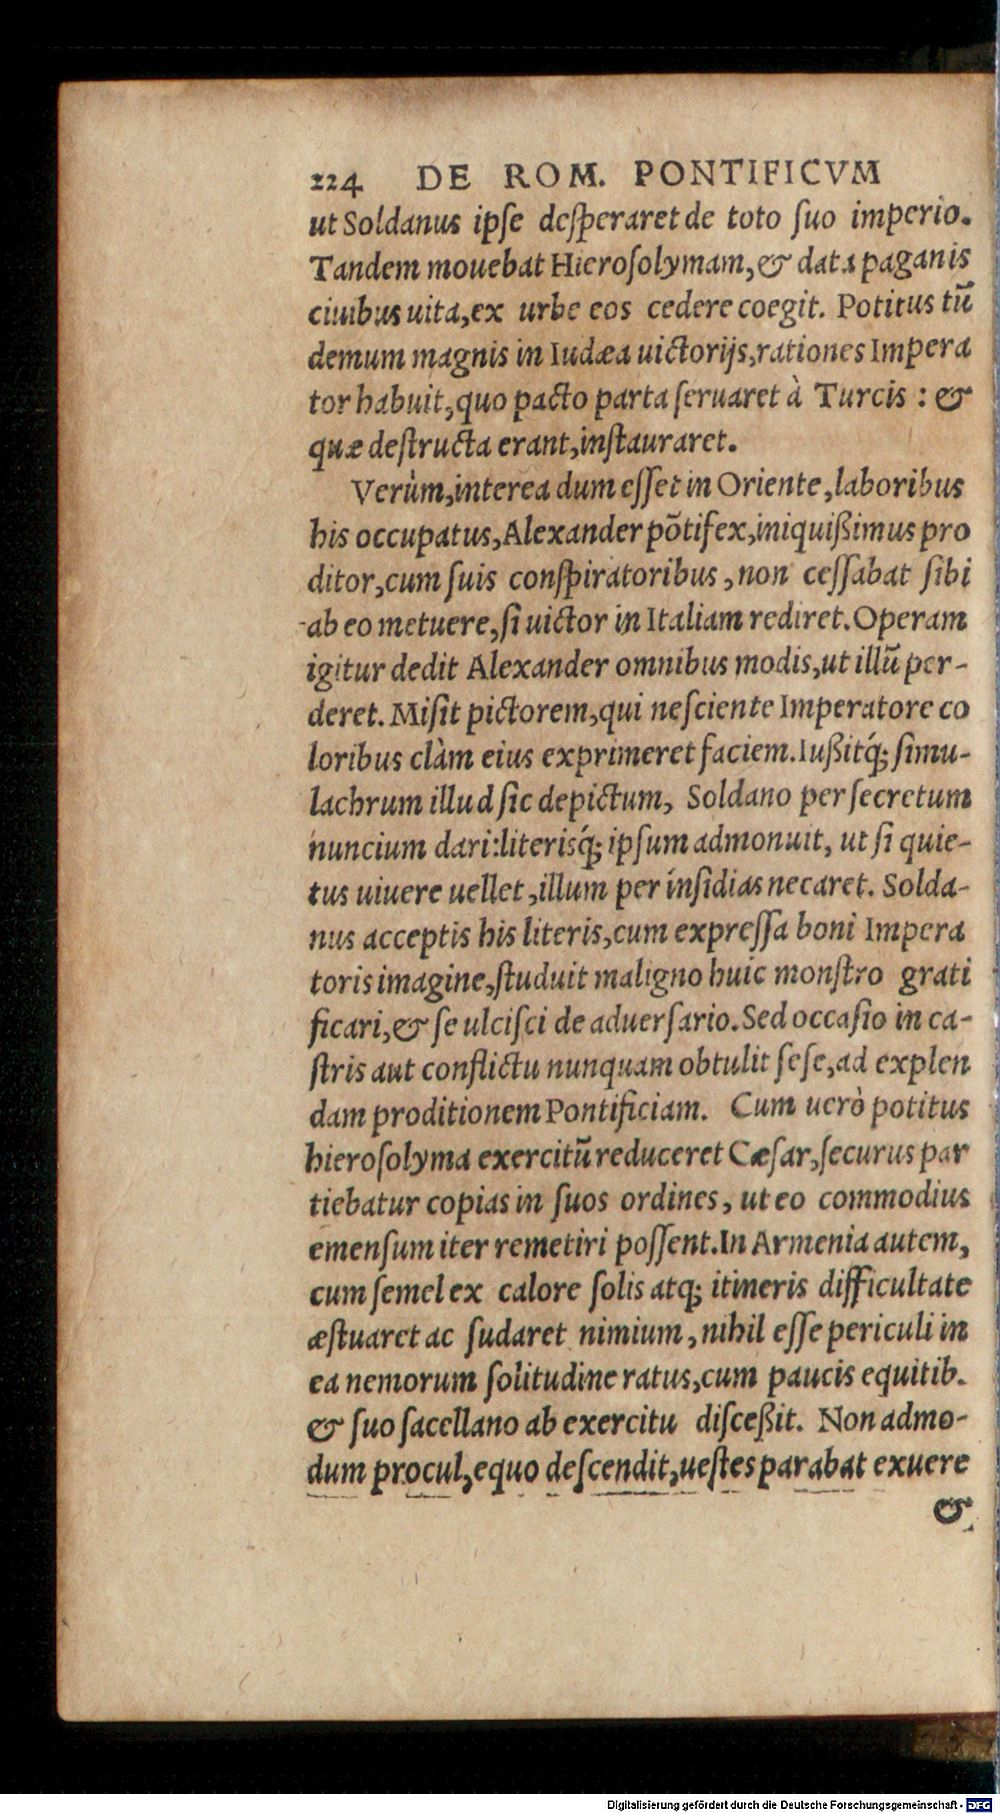 224 DE ROM. PONTIFICVM
ut Soldanus ipſe deſperaret de toto ſuo imperio.
Tandem mouebat Hieroſolymam, & data paganis
ciuibus uita, ex urbe eos cedere coegit. Potitus tũ
demum magnis in Iudæa uictorijs, rationes Impera
tor habuit, quo pacto parta ſeruaret à Turcis : &
quæ deſtructa erant, inſtauraret.
Verùm, interea dum eſſet in Oriente, laboribus
his occupatus, Alexander põtifex, iniquißimus pro
ditor, cum ſuis conſpiratoribus, non ceſſabat ſibi
ab eo metuere, ſi uictor in Italiam rediret. Operam
igitur dedit Alexander omnibus modis, ut illũ per-
deret. Miſit pictorem, qui neſciente Imperatore co
loribus clàm eius exprimeret faciem. Iußitq́; ſimu-
lachrum illud ſic depictum, Soldano per ſecretum
nuncium dari: literisq́; ipſum admonuit, ut ſi quie-
tus uiuere uellet, illum per inſidias necaret. Solda-
nus acceptis his literis, cum expreſſa boni Impera
toris imagine, ſtuduit maligno huic monſtro grati
ficari, & ſe ulciſci de aduerſario. Sed occaſio in ca-
ſtris aut conflictu nunquam obtulit ſeſe, ad explen
dam proditionem Pontificiam. Cum uerò potitus
hieroſolyma exercitũ reduceret Cæſar, ſecurus par
tiebatur copias in ſuos ordines, ut eo commodius
emenſum iter remetiri poſſent. In Armenia autem,
cum ſemel ex calore ſolis atq; itineris difficultate
æſtuaret ac ſudaret nimium, nihil eſſe periculi in
ea nemorum ſolitudine ratus, cum paucis equitib.
& ſuo ſacellano ab exercitu diſceßit. Non admo-
dum procul, equo deſcendit, ueſtes parabat exuere
&
Digitalisierung gefördert durch die Deutsche Forschungsgemeinschaft - DFG